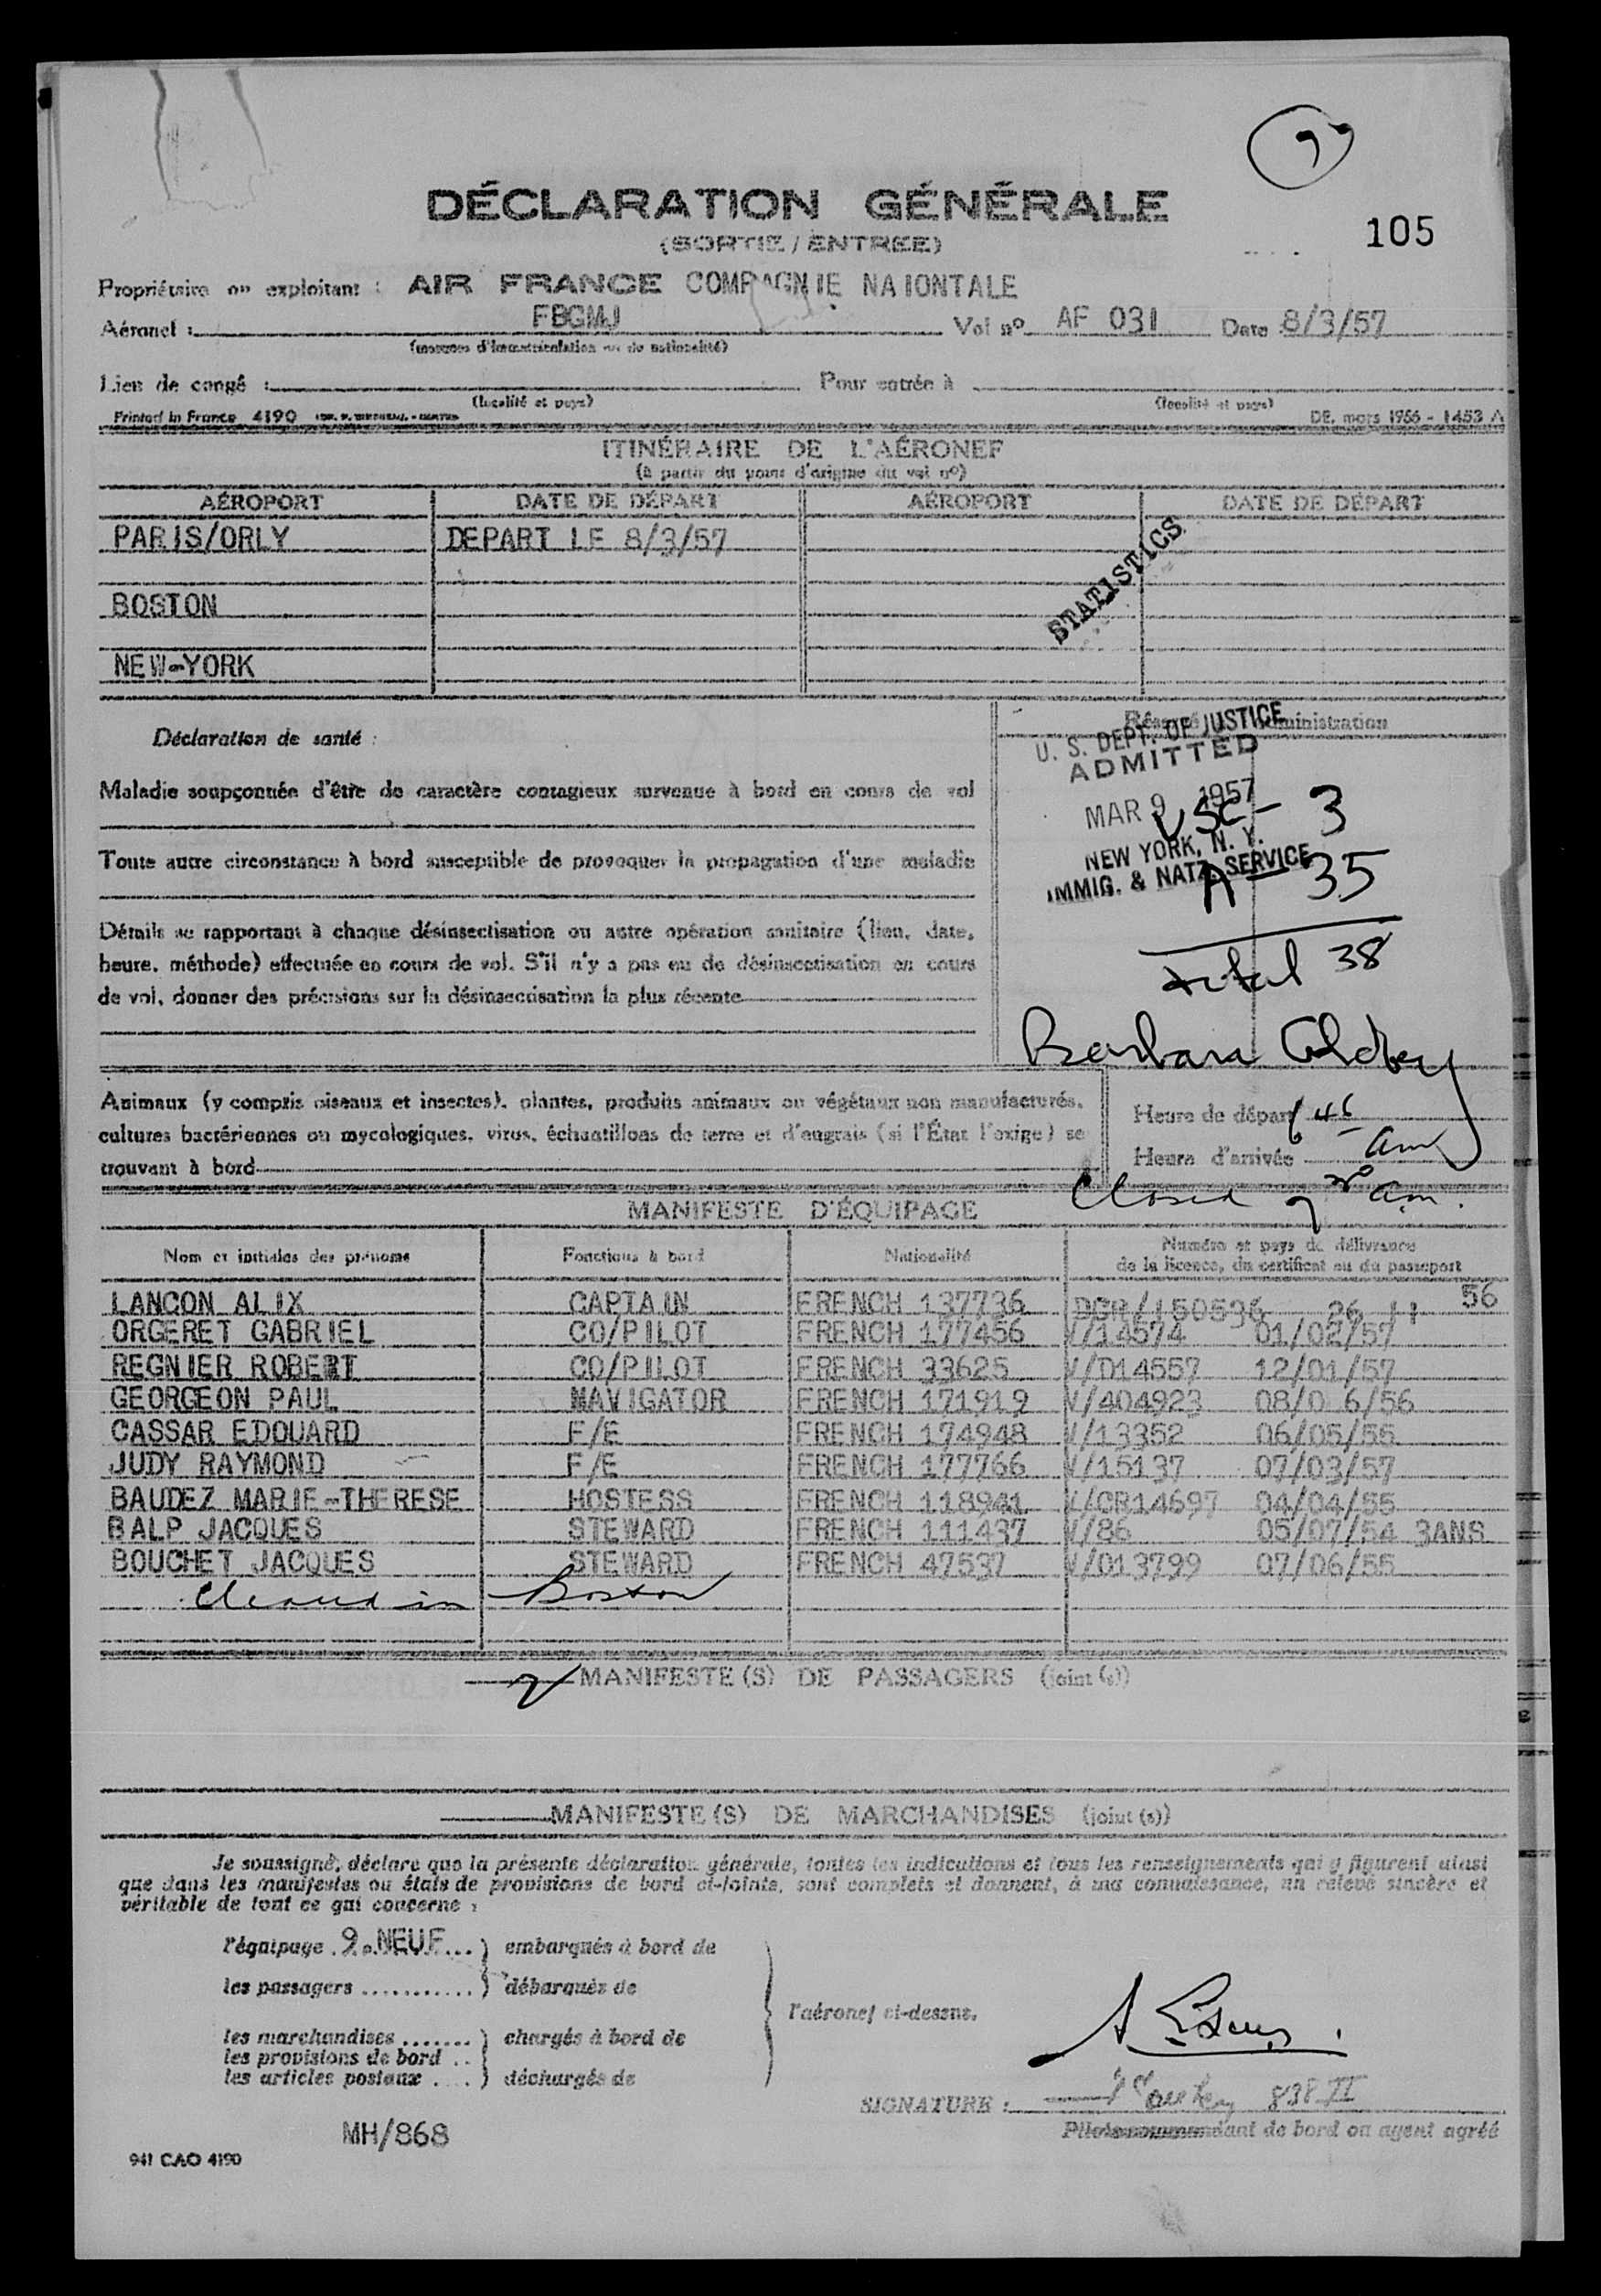 DÉCLARATION GÉNÉRALE
(SORTIE / ENTREE)
105
Propriétaire ou exploitant : AIR FRANCE COMPAGNIE NAIONTALE
Aéronef : FBGMJ Vol nº AF 031 Date 8/3/57
(marques d'immatriculation ou de nationalité)
Lieu de congé : Pour entrée à
(localité et pays) (localité et pays)
Printed in France 4190 DE. mars 1956 - 1453 A
ITINÉRAIRE DE L'AÉRONEF
(à partir du point d'origine du vol nº)
AÉROPORT DATE DE DÉPART AÉROPORT DATE DE DÉPART
PARIS/ORLY DEPART LE 8/3/57
STATISTICS
BOSTON
NEW-YORK
Déclaration de santé :
Maladie soupçonnée d'être de caractère contagieux survenue à bord en cours de vol
Toute autre circonstance à bord susceptible de provoquer la propagation d'une maladie
Détails se rapportant à chaque désinsectisation ou autre opération sanitaire (lieu, date,
heure, méthode) effectuée en cours de vol. S'il n'y a pas eu de désinsectisation en cours
de vol, donner des précisions sur la désinsectisation la plus récente
administration
U. S. DEPT. OF JUSTICE
ADMITTED
MAR 9 1957
NEW YORK, N. Y.
IMMIG. & NATZ. SERVICE
USC - 3
A - 35
total 38
Barbara
Animaux (y compris oiseaux et insectes), plantes, produits animaux ou végétaux non manufacturés,
cultures bactériennes ou mycologiques, virus, échantillons de terre et d'engrais (si l'État l'exige) se
trouvant à bord
Heure de départ 6 45
Heure d'arrivée am
Closed 7 am.
MANIFESTE D'ÉQUIPAGE
Nom et initiales des prénoms Fonctions à bord Nationalité Numéro et pays de délivrance
de la licence, du certificat ou du passeport
LANCON ALIX CAPTAIN FRENCH 137736 DGR/150536 26 11 56
ORGERET GABRIEL CO/PILOT FRENCH 177456 V/14574 01/02/57
REGNIER ROBERT CO/PILOT FRENCH 33625 V/D14557 12/01/57
GEORGEON PAUL NAVIGATOR FRENCH 171919 V/404923 08/0 6/56
CASSAR EDOUARD F/E FRENCH 174948 V/13352 06/05/55
JUDY RAYMOND F/E FRENCH 177766 V/15137 07/03/57
BAUDEZ MARIE-THERESE HOSTESS FRENCH 118941 V/CR14697 04/04/55
BALP JACQUES STEWARD FRENCH 111437 V/86 05/07/54 3ANS
BOUCHET JACQUES STEWARD FRENCH 47537 V/013799 07/06/55
Cleared in Boston
2 MANIFESTE (S) DE PASSAGERS (joint (s))
MANIFESTE (S) DE MARCHANDISES (joint (s))
Je soussigné, déclare que la présente déclaration générale, toutes les indications et tous les renseignements qui y figurent ainsi
que dans les manifestes ou états de provisions de bord ci-joints, sont complets et donnent, à ma connaissance, un relevé sincère et
véritable de tout ce qui concerne :
l'équipage . 9. NEUF ... ) embarqués à bord de
les passagers ........... ) débarqués de
l'aéronef ci-dessus.
les marchandises ....... ) chargés à bord de
les provisions de bord ..
les articles postaux .... ) déchargés de
SIGNATURE :
Pilote commandant de bord ou agent agréé
MH/868
941 CAO 4190